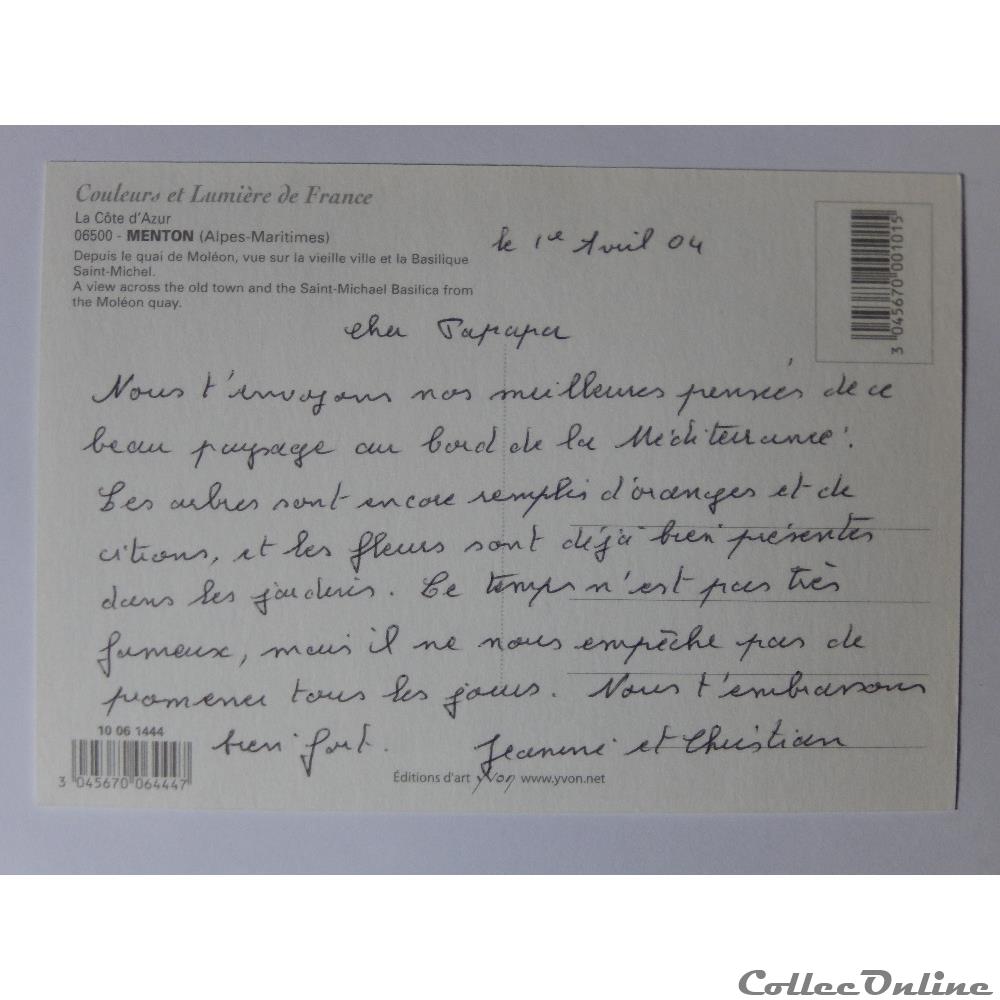 Couleurs et Lumière de France
La Côte d'Azur
06500 - MENTON (Alpes-Maritimes)
Depuis le quai de Moléon, vue sur la vieille ville et la Basilique
Saint-Michel.
A view across the old town and the Saint-Michael Basilica from
the Moléon quay.
le 1er Avril 04
3 045670 001015
cher Papapa
Nous t'envoyons nos meilleures pensées de ce
beau paysage au bord de la Méditerranée.
Les arbres sont encore remplis d'oranges et de
citrons, et les fleurs sont déjà bien présentes
dans les jardins. Le temps n'est pas très
fameux, mais il ne nous empêche pas de
promener tous les jours. Nous t'embrassons
bien fort. Jeannine et Christian
10 06 1444
3 045670 064447
Éditions d'art yvon www.yvon.net
CollecOnline